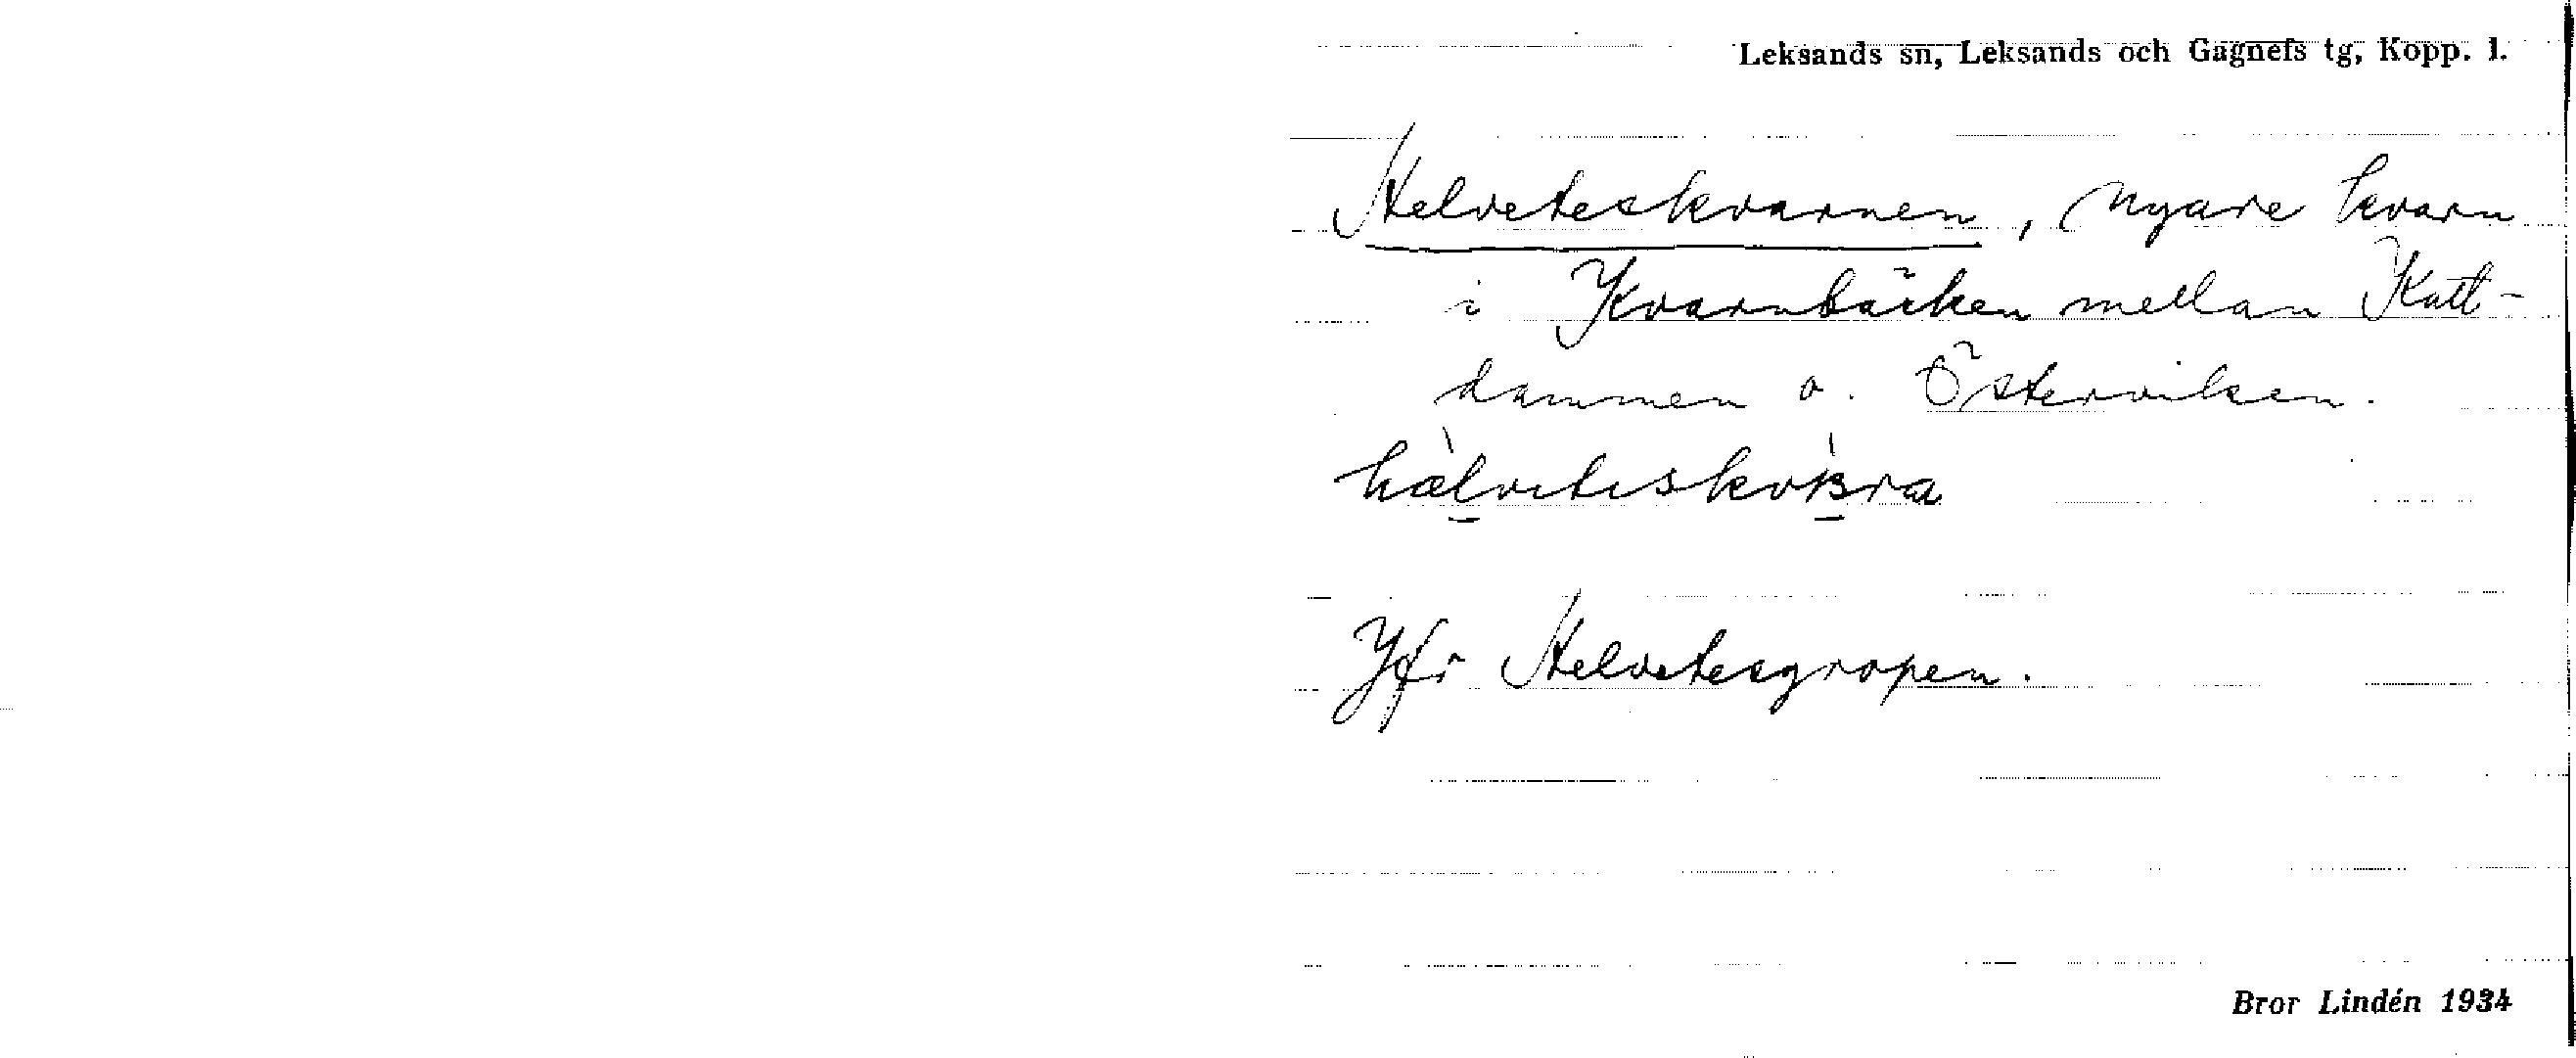 Leksands sn, Leksands och Gagnefs tg, Kopp. l.
Helveteskvarnen, nyare kvarn
i Kvarnbäcken mellan Katt-
dammen o. Österviken.
Jfr Helvetesgropen.
Bror Lindén 1934